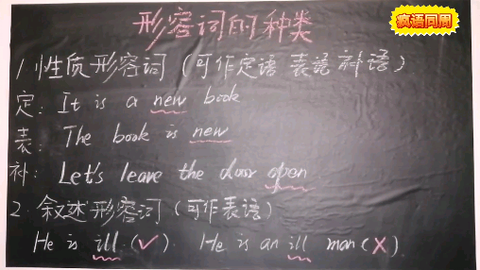 疯语同周
形容词的种类
1 性质形容词（可作定语 表语 补语）
定：It is a new book
表：The book is new
补：Let's leave the door open
2. 叙述形容词（可作表语）
He is ill (✓). He is an ill man (×).